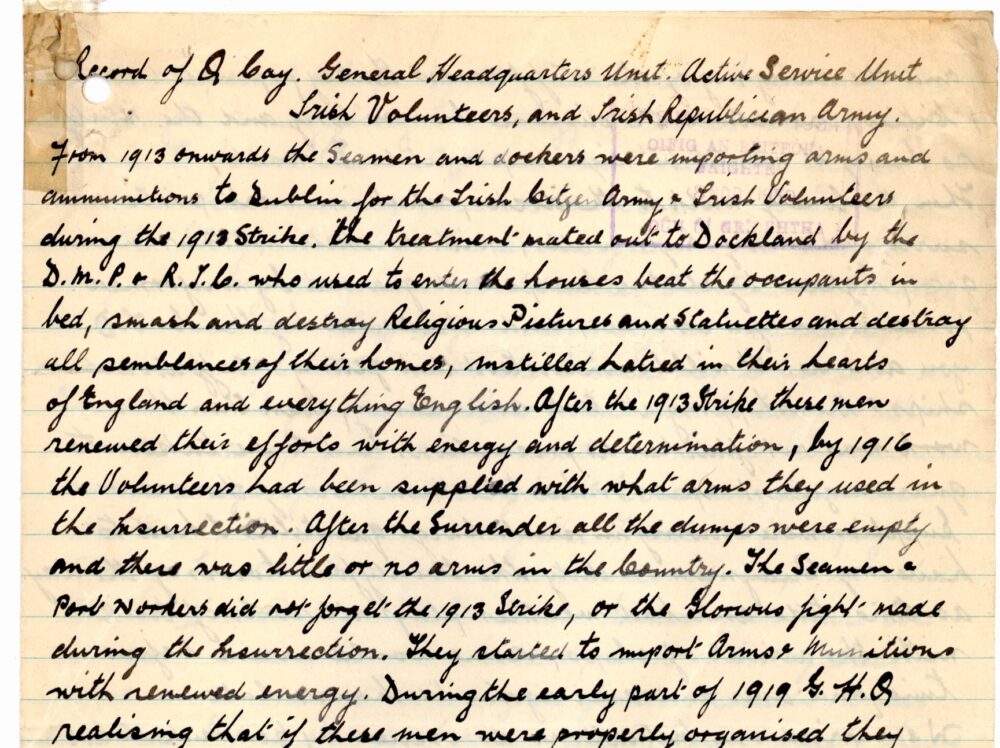 Record of Q Coy. General Headquarters Unit. Active Service Unit
Irish Volunteers, and Irish Republician Army.
From 1913 onwards the Seamen and dockers were importing arms and
ammunitions to Dublin for the Irish Citzen Army & Irish Volunteers
during the 1913 Strike. The treatment mated out to Dockland by the
D.M.P. & R.I.C. who used to enter the houses beat the occupants in
bed, smash and destray Religious Pictures and Statuettes and destray
all semblances of their homes, instilled hatred in their hearts
of England and everything English. After the 1913 Strike these men
renewed their efforts with energy and determination, by 1916
the Volunteers had been supplied with what arms they used in
the Insurrection. After the Surrender all the dumps were empty
and there was little or no arms in the Country. The Seamen &
Port Workers did not forget the 1913 Strike, or the Glorious fight made
during the Insurrection. They started to import Arms & Munitions
with renewed energy. During the early part of 1919 G.H.Q
realising that if these men were properly organised they